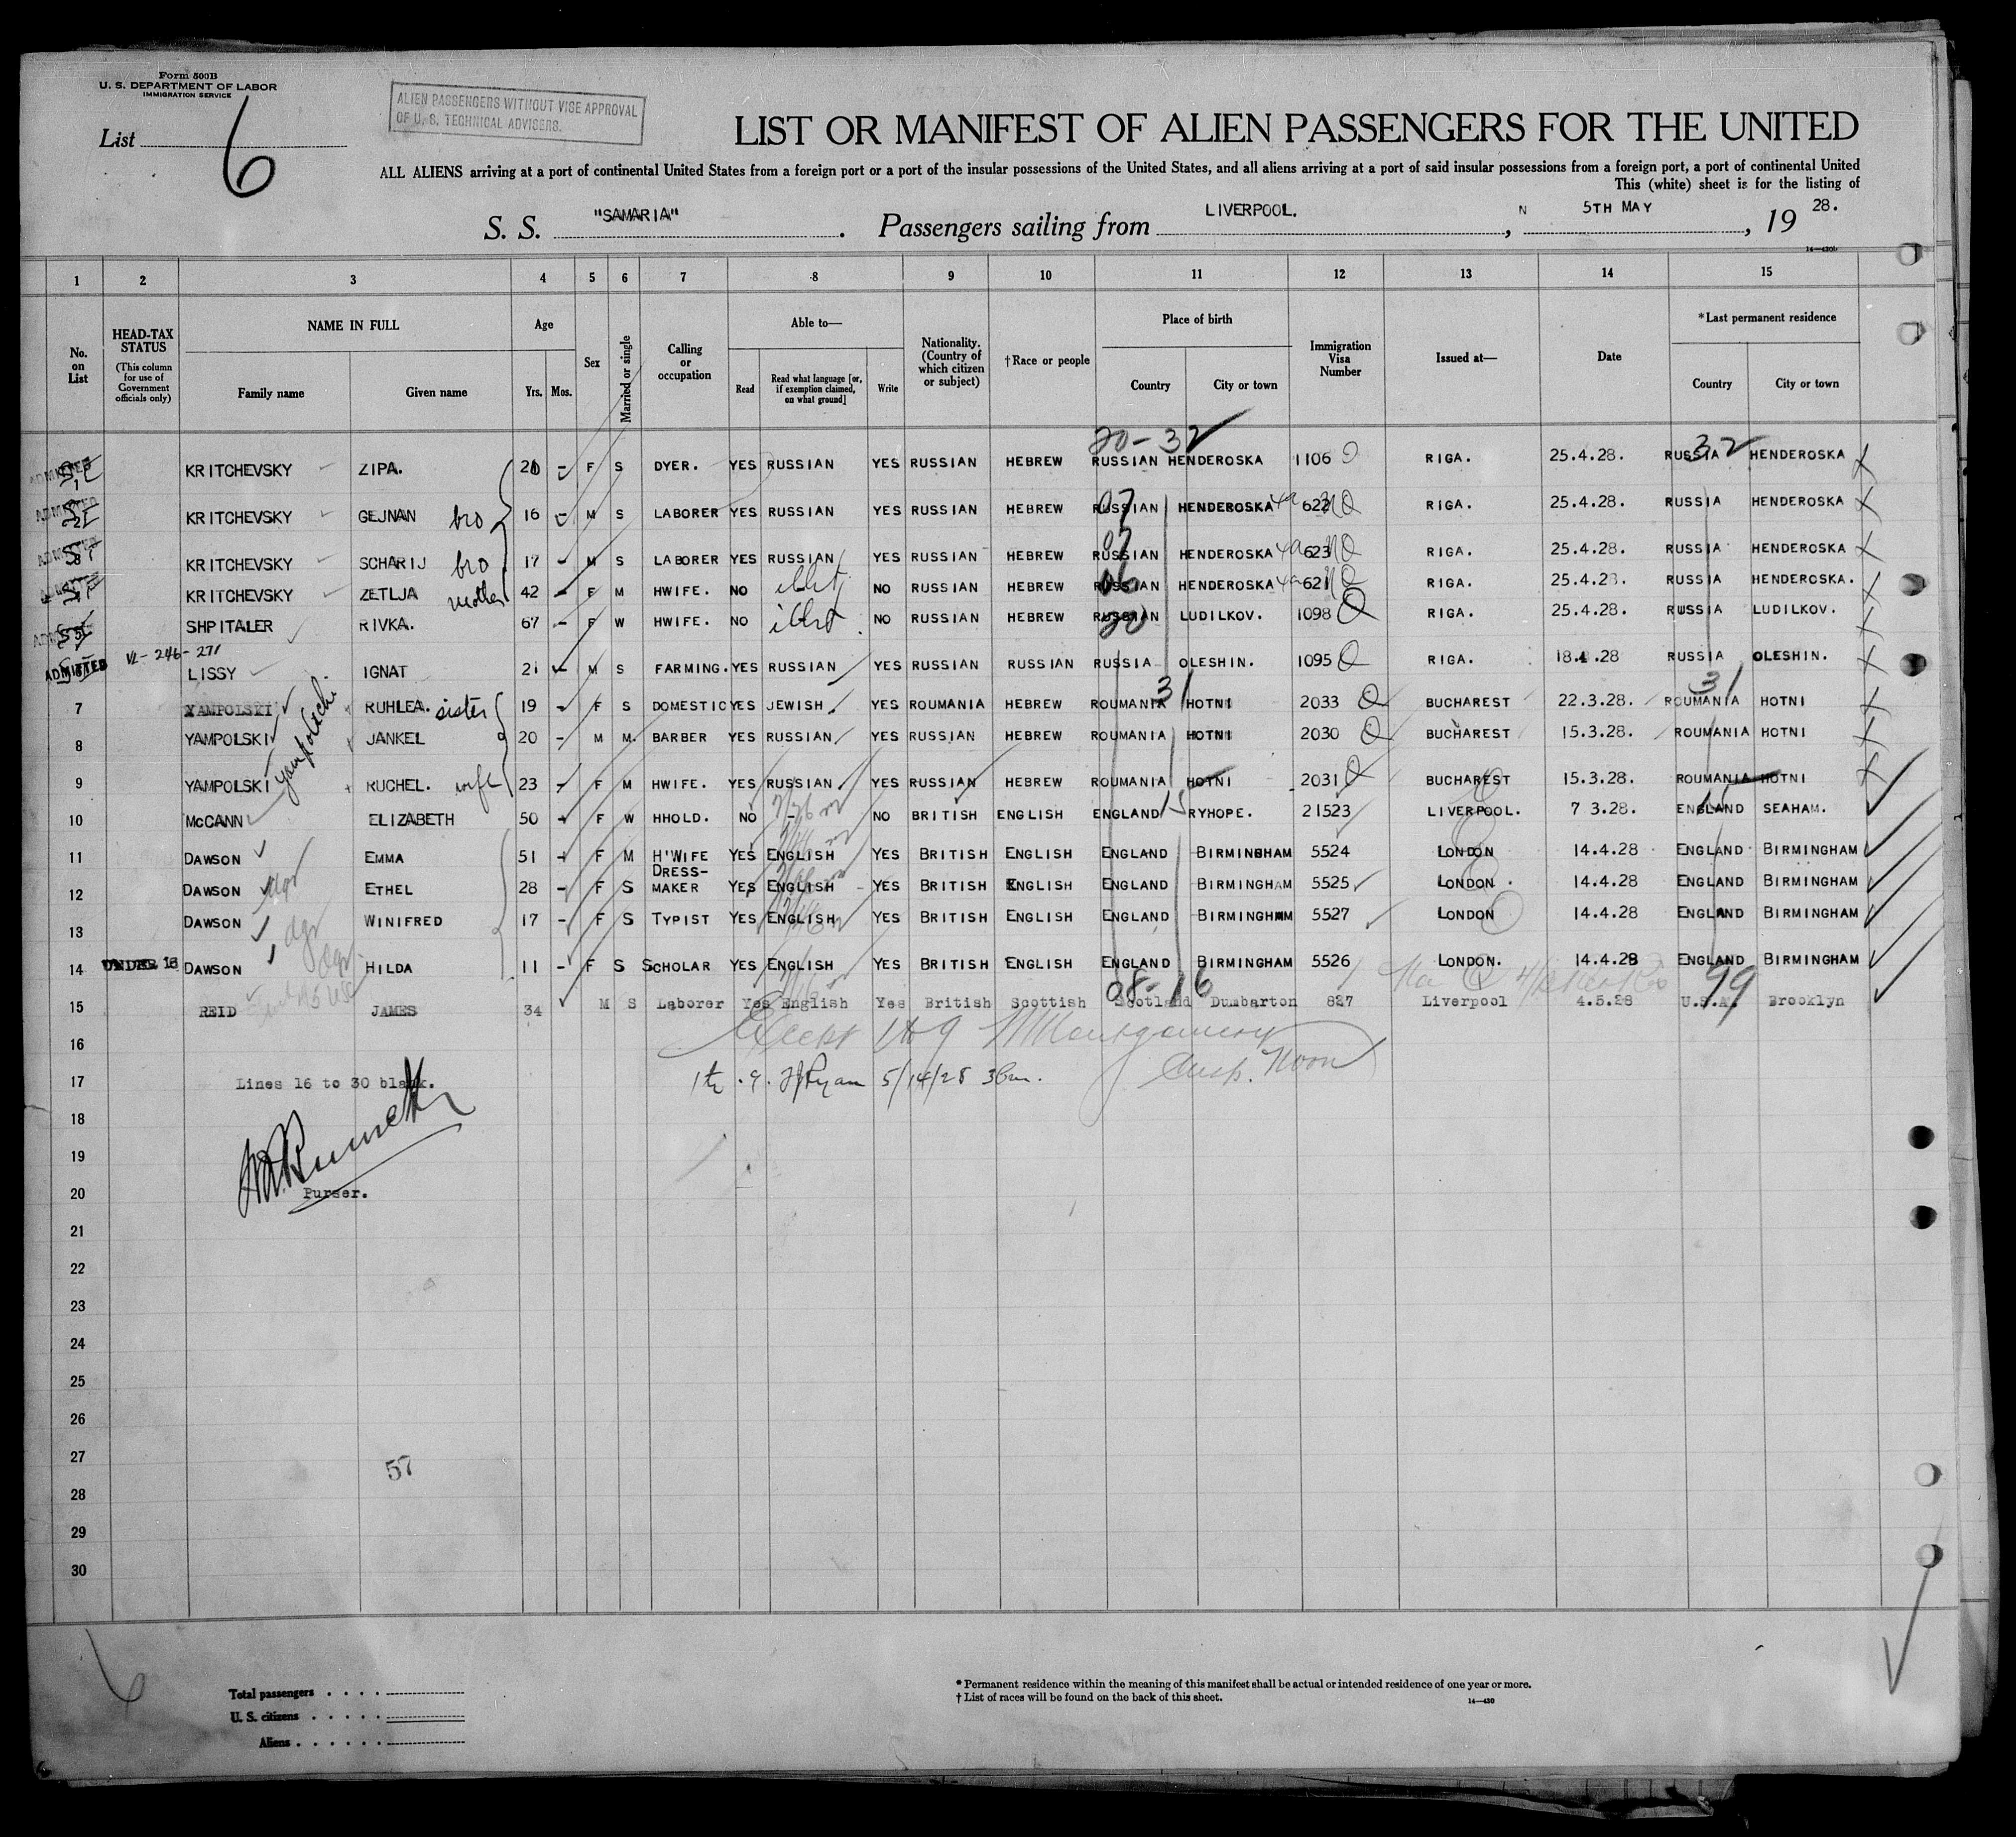 Form 500B
U. S. DEPARTMENT OF LABOR
IMMIGRATION SERVICE
List 6
ALIEN PASSENGERS WITHOUT VISE APPROVAL
OF U. S. TECHNICAL ADVISERS.
LIST OR MANIFEST OF ALIEN PASSENGERS FOR THE UNITED
ALL ALIENS arriving at a port of continental United States from a foreign port or a port of the insular possessions of the United States, and all aliens arriving at a port of said insular possessions from a foreign port, a port of continental United
This (white) sheet is for the listing of
S. S. "SAMARIA". Passengers sailing from LIVERPOOL., N 5TH MAY, 19 28.
14—430b
1 2 3 4 5 6 7 8 9 10 11 12 13 14 15
No. on List
HEAD-TAX STATUS (This column for use of Government officials only)
NAME IN FULL
Family name Given name
Age
Yrs. Mos.
Sex
Married or single
Calling or occupation
Able to—
Read Read what language [or, if exemption claimed, on what ground] Write
Nationality. (Country of which citizen or subject)
†Race or people
Place of birth
Country City or town
Immigration Visa Number
Issued at—
Date
*Last permanent residence
Country City or town
20-32 32
ADMITTED 1 KRITCHEVSKY ZIPA. 20 - F S DYER. YES RUSSIAN YES RUSSIAN HEBREW RUSSIAN HENDEROSKA 1106 RIGA. 25.4.28. RUSSIA HENDEROSKA
ADMITTED 2 KRITCHEVSKY GEJNAN bro 16 - M S LABORER YES RUSSIAN YES RUSSIAN HEBREW RUSSIAN HENDEROSKA 622 RIGA. 25.4.28. RUSSIA HENDEROSKA
ADMITTED 3 KRITCHEVSKY SCHARIJ bro 17 - M S LABORER YES RUSSIAN YES RUSSIAN HEBREW RUSSIAN HENDEROSKA 623 RIGA. 25.4.28. RUSSIA HENDEROSKA
KRITCHEVSKY ZETLJA mother 42 - F M HWIFE. NO NO RUSSIAN HEBREW RUSSIAN HENDEROSKA 621 RIGA. 25.4.28. RUSSIA HENDEROSKA.
SHPITALER RIVKA. 67 - F W HWIFE. NO NO RUSSIAN HEBREW RUSSIAN LUDILKOV. 1098 RIGA. 25.4.28. RUSSIA LUDILKOV.
ADMITTED LISSY IGNAT 21 - M S FARMING. YES RUSSIAN YES RUSSIAN RUSSIAN RUSSIA OLESHIN. 1095 RIGA. 18.4.28 RUSSIA OLESHIN.
31 31
7 YAMPOLSKI RUHLEA. sister 19 - F S DOMESTIC YES JEWISH. YES ROUMANIA HEBREW ROUMANIA HOTNI 2033 BUCHAREST 22.3.28. ROUMANIA HOTNI
8 YAMPOLSKI JANKEL 20 - M M. BARBER YES RUSSIAN YES RUSSIAN HEBREW ROUMANIA HOTNI 2030 BUCHAREST 15.3.28. ROUMANIA HOTNI
9 YAMPOLSKI RUCHEL. wife 23 - F M HWIFE. YES RUSSIAN YES RUSSIAN HEBREW ROUMANIA HOTNI 2031 BUCHAREST 15.3.28. ROUMANIA HOTNI
10 McCANN ELIZABETH 50 - F W HHOLD. NO - NO BRITISH ENGLISH ENGLAND RYHOPE. 21523 LIVERPOOL. 7 3.28. ENGLAND SEAHAM.
11 DAWSON EMMA 51 - F M H'WIFE YES ENGLISH YES BRITISH ENGLISH ENGLAND BIRMINGHAM 5524 LONDON 14.4.28 ENGLAND BIRMINGHAM
12 DAWSON ETHEL 28 - F S DRESS-MAKER YES ENGLISH - YES BRITISH ENGLISH ENGLAND BIRMINGHAM 5525 LONDON . 14.4.28 ENGLAND BIRMINGHAM
13 DAWSON WINIFRED 17 - F S TYPIST YES ENGLISH YES BRITISH ENGLISH ENGLAND BIRMINGHAM 5527 LONDON 14.4.28 ENGLAND BIRMINGHAM
14 UNDER 16 DAWSON HILDA 11 - F S SCHOLAR YES ENGLISH YES BRITISH ENGLISH ENGLAND BIRMINGHAM 5526 LONDON. 14.4.28 ENGLAND BIRMINGHAM
08-16 99
15 REID JAMES 34 M S Laborer Yes English Yes British Scottish Scotland Dumbarton 827 Liverpool 4.5.28 U.S.A. Brooklyn
16
17 Lines 16 to 30 blank. Ryan 5/14/28
18
19
20 Purser.
21
22
23
24
25
26
27
57
28
29
30
Total passengers
U. S. citizens
Aliens
* Permanent residence within the meaning of this manifest shall be actual or intended residence of one year or more.
† List of races will be found on the back of this sheet.
14—430